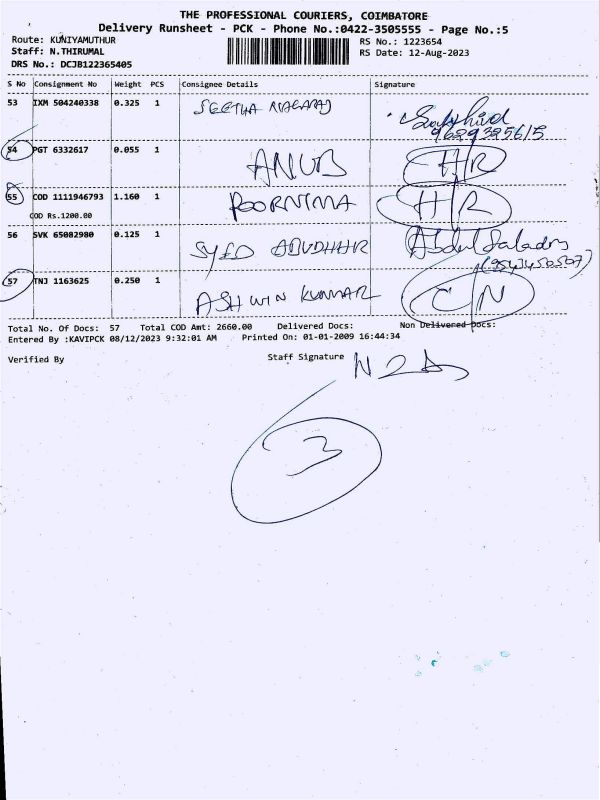 THE PROFESSIONAL COURIERS, COIMBATORE
Delivery Runsheet - PCK - Phone No.:0422-3505555 - Page No.:5
Route: KUNIYAMUTHUR RS No.: 1223654
Staff: N.THIRUMAL RS Date: 12-Aug-2023
DRS No.: DCJB122365405
S No Consignment No Weight PCS Consignee Details Signature
53 IXM 504240338 0.325 1 SEETHA
9629325615
54 PGT 6332617 0.055 1 HR
55 COD 1111946793 1.160 1 POORNIMA HR
COD Rs.1200.00
56 SVK 65082980 0.125 1 SYED Abdul
57 TNJ 1163625 0.250 1 ASHWIN KUMAR CN
Total No. Of Docs: 57 Total COD Amt: 2660.00 Delivered Docs: Non Delivered Docs:
Entered By :KAVIPCK 08/12/2023 9:32:01 AM Printed On: 01-01-2009 16:44:34
Verified By Staff Signature
3